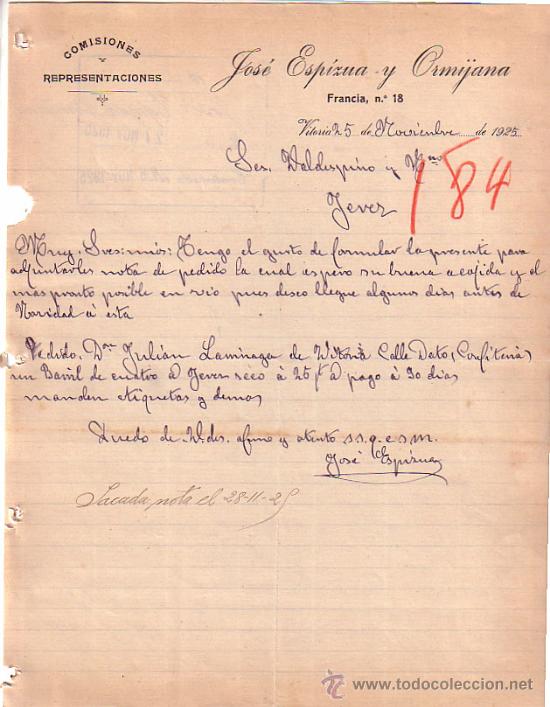 COMISIONES
Y
REPRESENTACIONES
José Espízua y Ormijana
Francia, n.º 18
Vitoria 25 de Noviembre de 1925
Sres. Valdespino y Hno
Jerez
184
Muy Sres mios: Tengo el gusto de formular la presente para
adjuntarles nota de pedido la cual espero su buena acojida y el
mas pronto posible en vio pues deseo llegue algunos dias antes de
Navidad á esta
Pedido Dn Julián Laminaga de Vitoria Calle Dato, Confiteria
un Barril de cuatro @ Jerez seco á 25 pts @ pago á 30 dias
manden etiquetas y demas
Quedo de Vdes. afmo y atento s s. q. e s m.
José Espízua
Sacada nota el 28-11-25
www.todocoleccion.net